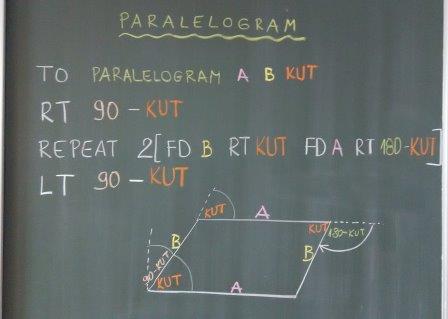 PARALELOGRAM
TO PARALELOGRAM A B KUT
RT 90 - KUT
REPEAT 2[FD B RT KUT FD A RT 180-KUT]
LT 90 - KUT
KUT A
KUT 180-KUT
B B
90-KUT KUT
A